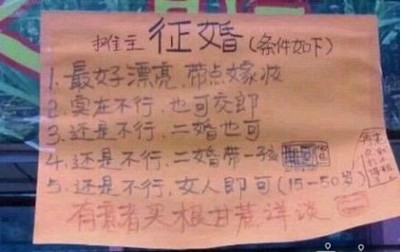 摊主 征婚 (条件如下)
1. 最好漂亮,带点嫁妆
2. 实在不行,也可交郎
3. 还是不行,二婚也可
4. 还是不行,二婚带一子
5. 还是不行,女人即可(15-50岁)
有意者买根甘蔗详谈